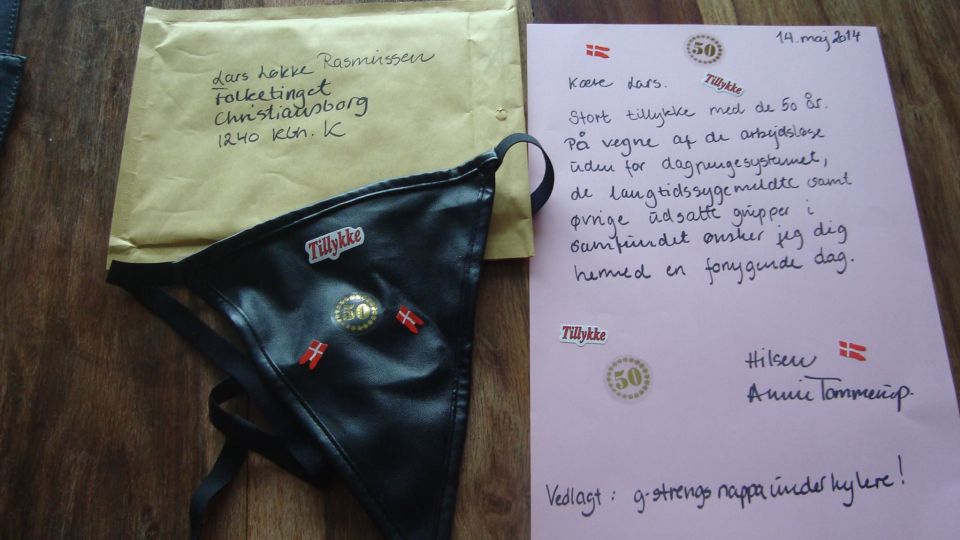 Lars Løkke Rasmussen
Folketinget
Christiansborg
1240 Kbh. K
Tillykke
50
50
14. maj 2014
Kære Lars.
Tillykke
Stort tillykke med de 50 år.
På vegne af de arbejdsløse
uden for dagpengesystemet,
de langtidssygemeldte samt
øvrige udsatte grupper i
samfundet ønsker jeg dig
hermed en fornygende dag.
Tillykke
50
Hilsen
Annie Tommerup.
Vedlagt : g-strengs nappaunderhylere!